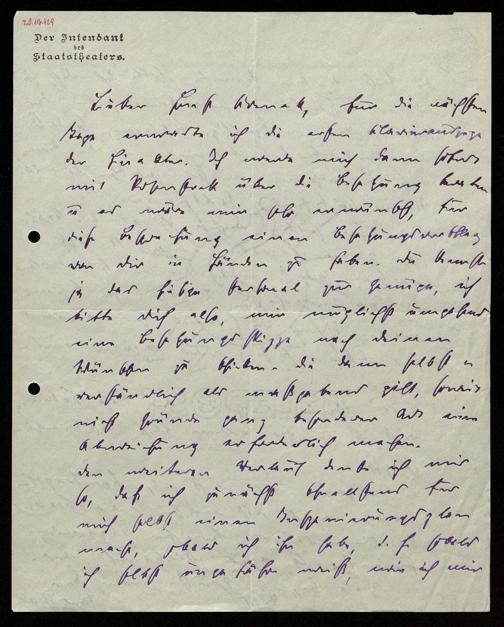 Der Intendant
des
Staatstheaters.
Lieber Ernst Krenek, für die nächsten
Tage erwarte ich die ersten Klavierauszüge
der Einakter. Ich werde mich dann sofort
mit Rosenstock über die Besetzung beraten
u es wäre mir sehr erwünscht, für
diese Besprechung einen Besetzungsvorschlag
von dir in Händen zu haben. du kennst
ja das hiesige Personal zur Genüge, ich
bitte dich also, mir möglichst umgehend
eine Besetzungsskizze nach deinen
Wünschen zu schicken. die dann selbst
verständlich als maßgebend gilt, soweit
nicht Gründe ganz besonderer Art eine
Abweichung erforderlich machen.
den weiteren Verlauf denke ich mir
so, daß ich zunächst für
mich selbst einen Inszenierungsplan
mache, sobald ich ihn habe, d. h. sobald
ich selbst ungefähr weiß, wie ich mir